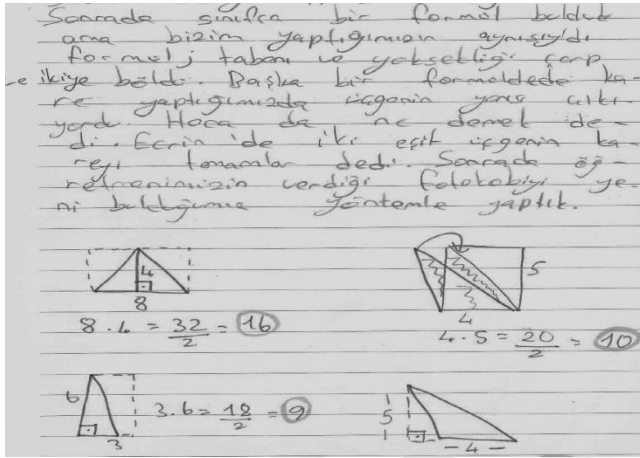 Sonrada sınıfca bir formül bulduk
ama bizim yaptığımızın aynısıydı
formülj tabanı ve yüksekliği çarp
ve ikiye böldü. Başka bir formüldede ka-
re yaptığımızda üçgenin yarısı çıkı-
yordu. Hoca da, ne demek de-
di. Ecrin'de iki eşit üçgenin ka-
reyi tamamlar dedi. Sonrada öğ-
retmenimizin verdiği fotokobiyi ye-
ni bulduğumuz yöntemle yaptık.
4
8
8 . 4 = 32/2 = 16
5
4
4 . 5 = 20/2 = 10
6
3
3 . 6 = 18/2 = 9
5
- 4 -